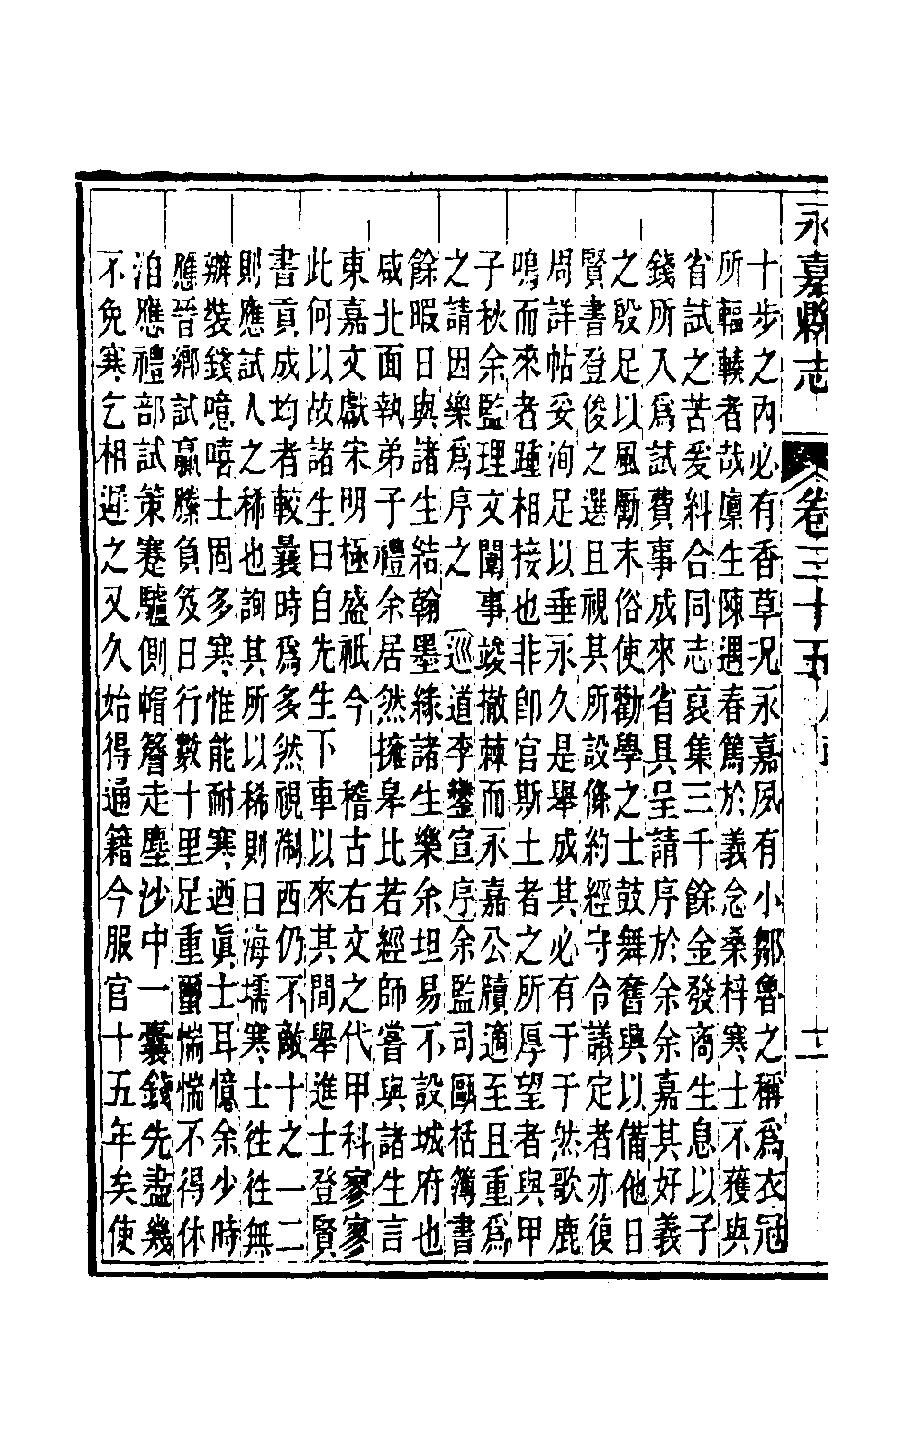 永嘉縣志 卷三十五 十二
十步之內必有香草況永嘉夙有小鄒魯之稱爲衣冠
所輻輳者哉廩生陳遇春篤於義念桑梓寒士不獲與
省試之苦爰糾合同志裒集三千餘金發商生息以子
錢所入爲試費事成來省具呈請序於余余嘉其好義
之殷足以風勵末俗使勸學之士鼓舞奮興以備他日
賢書登俊之選且視其所設條約經守令議定者亦復
周詳帖妥洵足以垂永久是舉成其必有于于然歌鹿
鳴而來者踵相接也非卽官斯土者之所厚望者與甲
子秋余監理文闈事竣撤棘而永嘉公牘適至且重爲
之請因樂爲序之 巡道李鑾宣序余監司甌栝簿書
餘暇日與諸生結翰墨緣諸生樂余坦易不設城府也
咸北面執弟子禮余居然擁皋比若經師嘗與諸生言
東嘉文獻宋明極盛祇今 稽古右文之代甲科寥寥
此何以故諸生曰自先生下車以來其間舉進士登賢
書貢成均者較曩時爲多然視淛西仍不敵十之一二
則應試人之稀也詢其所以稀則曰海壖寒士往往無
辦裝錢噫嘻士固多寒惟能耐寒迺眞士耳憶余少時
應晉鄉試羸縢負笈日行數十里足重繭惴惴不得休
洎應禮部試策蹇驢側帽簷走塵沙中一囊錢先盡幾
不免寒乞相遲之又久始得通籍今服官十五年矣使